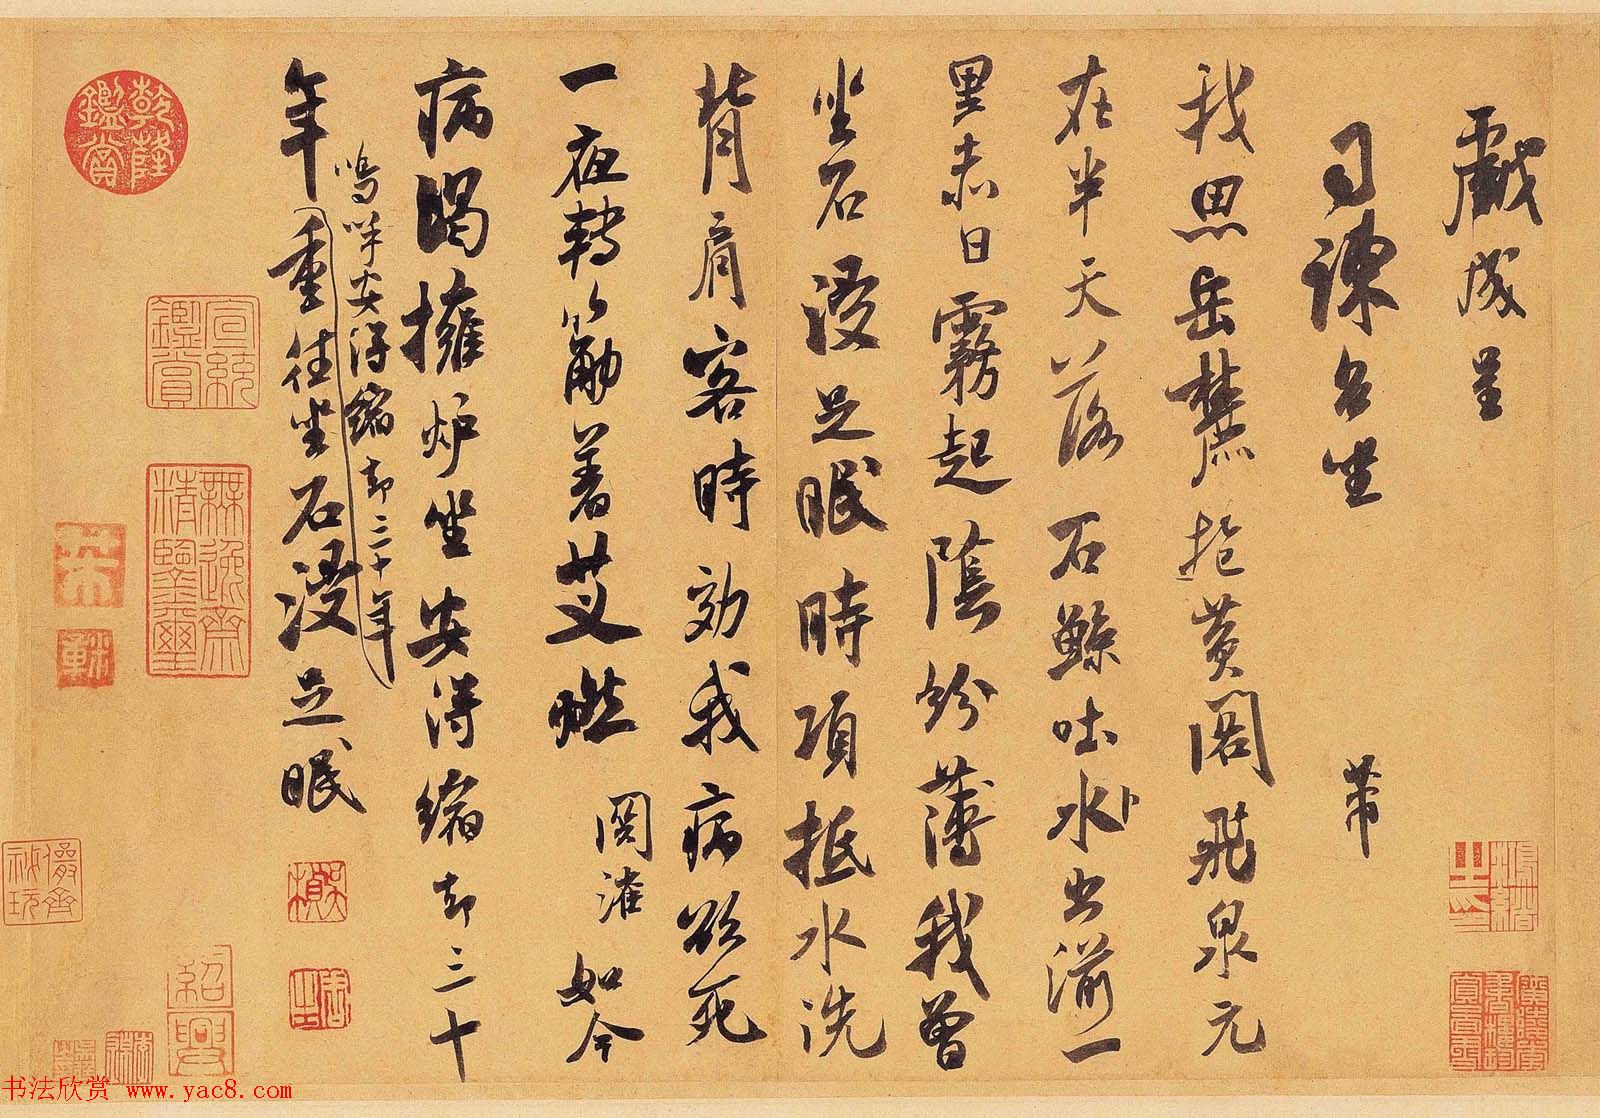 戲成呈
司諫台坐 芾
我思岳麓抱黄閣飛泉元
在半天落石鯨吐水出湔一
里赤日霧起陰紛薄我曾
坐石浸足眠時項抵水洗
背肩客時効我病欲死
一夜轉筋着艾燃 関灌 如今
病渴擁炉坐安得縮却三十
嗚呼安得縮却三十年
年重往坐石浸足眠
乾隆鑑賞
宣統鑑賞
無逸齋精鑒璽
儼齋秘玩
紹興
书法欣赏 www.yac8.com